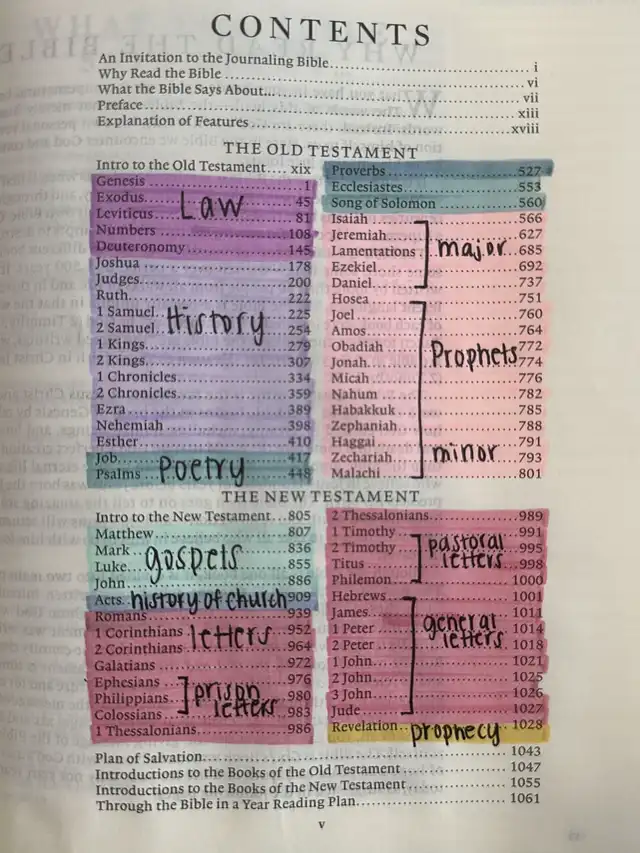 CONTENTS
An Invitation to the Journaling Bible.... i
Why Read the Bible .... vi
What the Bible Says About.... vii
Preface.... xiii
Explanation of Features.... xviii
THE OLD TESTAMENT
Intro to the Old Testament.... xix
Genesis .... 1
Exodus.... 45
Leviticus.... 81
Law
Numbers .... 108
Deuteronomy.... 145
Joshua .... 178
Judges.... 200
Ruth.... 222
1 Samuel.... 225
2 Samuel.... 254
History
1 Kings.... 279
2 Kings.... 307
1 Chronicles.... 334
2 Chronicles.... 359
Ezra.... 389
Nehemiah.... 398
Esther.... 410
Job.... 417
Psalms.... 448
Poetry
Proverbs.... 527
Ecclesiastes.... 553
Song of Solomon.... 560
Isaiah.... 566
Jeremiah.... 627
Lamentations.... 685
major
Ezekiel.... 692
Daniel.... 737
Hosea.... 751
Joel.... 760
Amos.... 764
Obadiah.... 772
Prophets
Jonah.... 774
Micah.... 776
Nahum.... 782
Habakkuk.... 785
Zephaniah.... 788
Haggai.... 791
Zechariah.... 793
minor
Malachi.... 801
THE NEW TESTAMENT
Intro to the New Testament... 805
Matthew.... 807
Mark.... 836
Luke.... 855
gospels
John.... 886
Acts.... 909
history of church
Romans.... 939
1 Corinthians.... 952
2 Corinthians.... 964
letters
Galatians.... 972
Ephesians.... 976
Philippians.... 980
Colossians.... 983
prison
letters
1 Thessalonians.... 986
2 Thessalonians.... 989
1 Timothy.... 991
2 Timothy.... 995
Titus.... 998
pastoral
letters
Philemon.... 1000
Hebrews.... 1001
James.... 1011
1 Peter.... 1014
2 Peter.... 1018
general
letters
1 John.... 1021
2 John.... 1025
3 John.... 1026
Jude.... 1027
Revelation.... 1028
prophecy
Plan of Salvation.... 1043
Introductions to the Books of the Old Testament.... 1047
Introductions to the Books of the New Testament.... 1055
Through the Bible in a Year Reading Plan.... 1061
v